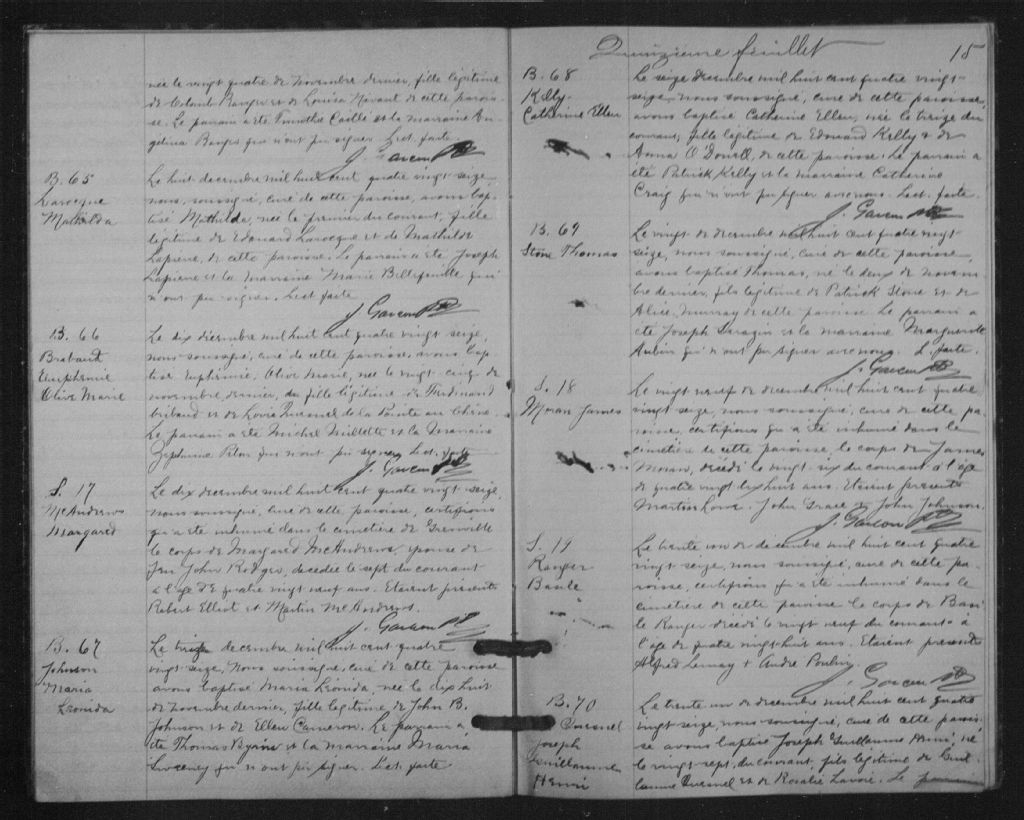 née le vingt quatre de novembre dernier, fille légitime
de Colomb Ranger et de Louisa de cette parois-
se. Le parrain a été Timothé et la marraine An-
gélina Ranger qui n'ont pu signer. Lect. faite.
J. Gascon Ptre
B. 65
Larocque
Mathilda
Le huit decembre mil huit cent quatre vingt seize
nous, soussigné, curé de cette paroisse, avons bap-
tisé Mathilda, née le premier du courant, fille
légitime de Edouard Larocque et de Mathilde
Lapierre, de cette paroisse. Le parrain a été Joseph
Lapierre et la marraine Marie qui
n'ont pu signer. Lect. faite
J. Gascon Ptre
B. 66
Brabant
Euphemie
Olive Marie
Le dix décembre mil huit cent quatre vingt seize,
nous soussigné, curé de cette paroisse, avons bap-
tisé Euphémie, Olive Marie, née le vingt cinq de
novembre dernier, du fille légitime de Ferdinand
et de Louise Quesnel de la Pointe au Chêne.
Le parrain a été Michel Millette et la Marraine
Zéphirine Pilon qui n'ont pu signer. Lect. faite
J. Gascon Ptre
S. 17
McAndrews
Margared
Le dix decembre mil huit cent quatre vingt seize,
nous soussigné, curé de cette paroisse, certifions
qu'a été inhumé dans le cimetière de Grenville
le corps de Margared McAndrews, épouse de
feu John Rodger, décédée le sept du courant
à l'age de quatre vingt neuf ans. Etaient présents
Robert Elliot et Martin McAndrews.
J. Gascon Ptre
B. 67
Johnson
Maria
Léonida
Le treize decembre mil huit cent quatre
vingt seize, Nous soussigné, curé de cette paroisse
avons baptisé Maria Léonida, née le dix huit
de novembre dernier, fille légitime de John B.
Johnson et de Ellen Cameron. Le parrain a
été Thomas Byrns et la marraine Maria
Sweeney qui n'ont pu signer. Lect. faite
Quinzième feuillet 15
B. 68
Kelly
Catherine Ellen
Le seize decembre mil huit cent quatre vingt-
seize, nous soussigné, curé de cette paroisse,
avons baptisé Catherine Ellen, née le treize du
courant, fille légitime de Edouard Kelly & de
Anna O'Donell, de cette paroisse. Le parrain a
été Patrick Kelly et la marraine Catherine
Craig qui n'ont pu signer avec nous. Lect. faite
J. Gascon Ptre
B. 69
Stone Thomas
Le vingt de decembre mil huit cent quatre vingt
seize, nous soussigné, curé de cette paroisse,
avons baptisé Thomas, né le deux de novem-
bre dernier, fils légitime de Patrick Stone et de
Alice Murray de cette paroisse. Le parrain a
été Joseph Sarazin et la marraine Marguerite
Aubin qui n'ont pu signer avec nous. L. faite.
J. Gascon Ptre
S. 18
Moran James
Le vingt neuf de decembre mil huit cent quatre
vingt seize, nous soussigné, curé de cette pa-
roisse, certifions qu'a été inhumé dans le
cimetière de cette paroisse, le corps de James
Moran, décédé le vingt six du courant à l'âge
de quatre vingt dix huit ans. Etaient présents
Martin Lowe. John Grace & John Johnson.
J. Gascon Ptre
S. 19
Ranger
Basile
Le trente un de décembre mil huit cent quatre
vingt seize, nous soussigné, curé de cette pa-
roisse, certifions qu'a été inhumé dans le
cimetière de cette paroisse le corps de Basi-
le Ranger décédé le vingt neuf du courant à
l'âge de quatre vingt huit ans. Etaient présents
Alfred Lemay & André Poulin.
J. Gascon Ptre
B. 70
Quesnel
Joseph
Guillaume
Henri
Le trente un de decembre mil huit cent quatre
vingt seize, nous soussigné, curé de cette parois-
se avons baptisé Joseph Guillaume Henri, né
le vingt sept du courant, fils légitime de Guil-
laume Quesnel et de Rosalie Lavoie. Le parrain